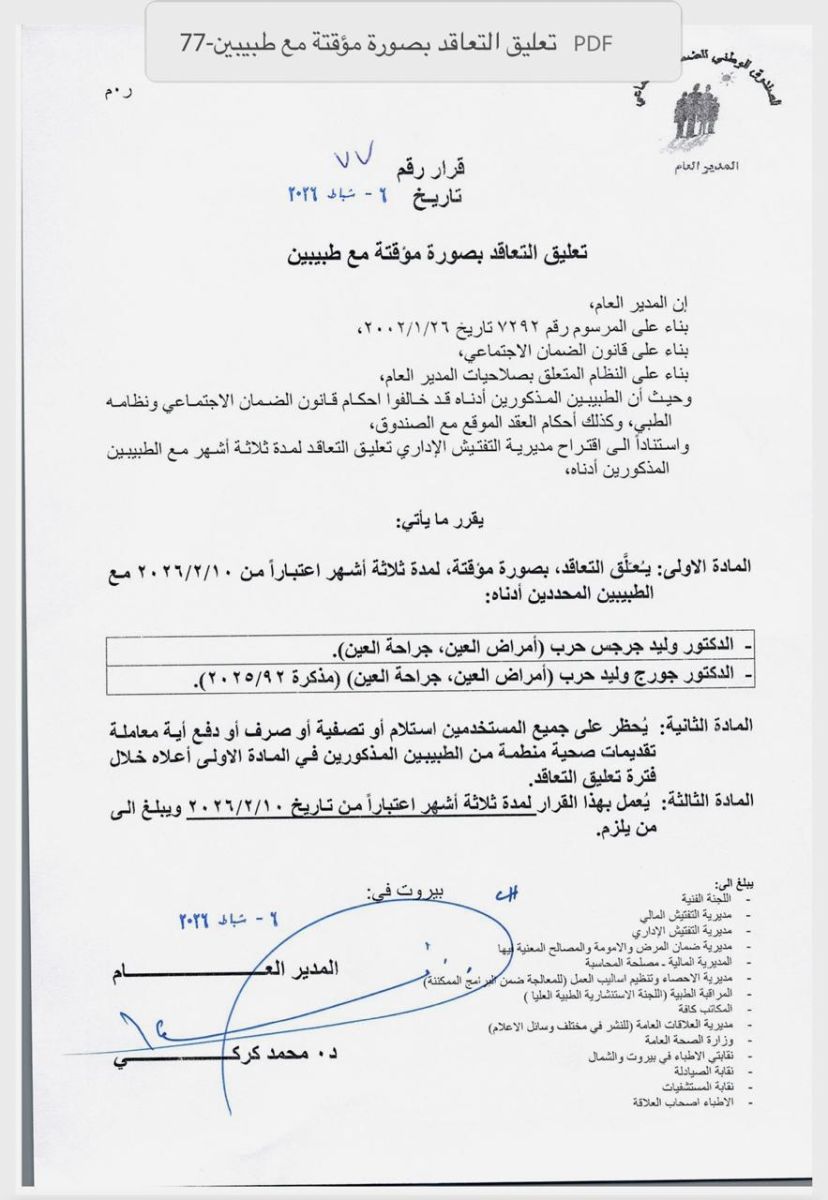 PDF تعليق التعاقد بصورة مؤقتة مع طبيبين-77
الصندوق الوطني للضمان الاجتماعي
المدير العام
ر٠م
قرار رقم ٧٧
تاريخ ٦ - شباط ٢٠٢٦
تعليق التعاقد بصورة مؤقتة مع طبيبين
إن المدير العام،
بناء على المرسوم رقم ٧٢٩٢ تاريخ ٢٠٠٢/١/٢٦،
بناء على قانون الضمان الاجتماعي،
بناء على النظام المتعلق بصلاحيات المدير العام،
وحيث أن الطبيبين المذكورين أدناه قد خالفوا احكام قانون الضمان الاجتماعي ونظامه
الطبي، وكذلك أحكام العقد الموقع مع الصندوق،
واستناداً الى اقتراح مديرية التفتيش الإداري تعليق التعاقد لمدة ثلاثة أشهر مع الطبيبين
المذكورين أدناه،
يقرر ما يأتي:
المادة الاولى: يُعلَّق التعاقد، بصورة مؤقتة، لمدة ثلاثة أشهر اعتباراً من ٢٠٢٦/٢/١٠ مع
الطبيبين المحددين أدناه:
- الدكتور وليد جرجس حرب (أمراض العين، جراحة العين).
- الدكتور جورج وليد حرب (أمراض العين، جراحة العين) (مذكرة ٢٠٢٥/٩٢).
المادة الثانية: يُحظر على جميع المستخدمين استلام أو تصفية أو صرف أو دفع أية معاملة
تقديمات صحية منظمة من الطبيبين المذكورين في المادة الاولى أعلاه خلال
فترة تعليق التعاقد.
المادة الثالثة: يُعمل بهذا القرار لمدة ثلاثة أشهر اعتباراً من تاريخ ٢٠٢٦/٢/١٠ ويبلغ الى
من يلزم.
يبلغ الى:
- اللجنة الفنية
- مديرية التفتيش المالي
- مديرية التفتيش الإداري
- مديرية ضمان المرض والامومة والمصالح المعنية فيها
- المديرية المالية - مصلحة المحاسبة
- مديرية الاحصاء وتنظيم اساليب العمل (للمعالجة ضمن البرامج الممكننة)
- المراقبة الطبية (اللجنة الاستشارية الطبية العليا )
- المكاتب كافة
- مديرية العلاقات العامة (للنشر في مختلف وسائل الاعلام)
- وزارة الصحة العامة
- نقابتي الاطباء في بيروت والشمال
- نقابة الصيادلة
- نقابة المستشفيات
- الاطباء اصحاب العلاقة
بيروت في:
٦ - شباط ٢٠٢٦
المدير العـــــــــام
د٠ محمد كركـــــــــي